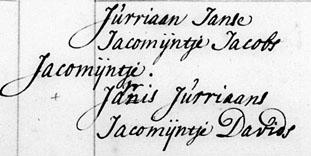 Jurriaan Janse
Jacomijntje Jacobs
Jacomijntje.
Joris Jurriaans
Jacomijntje Davids